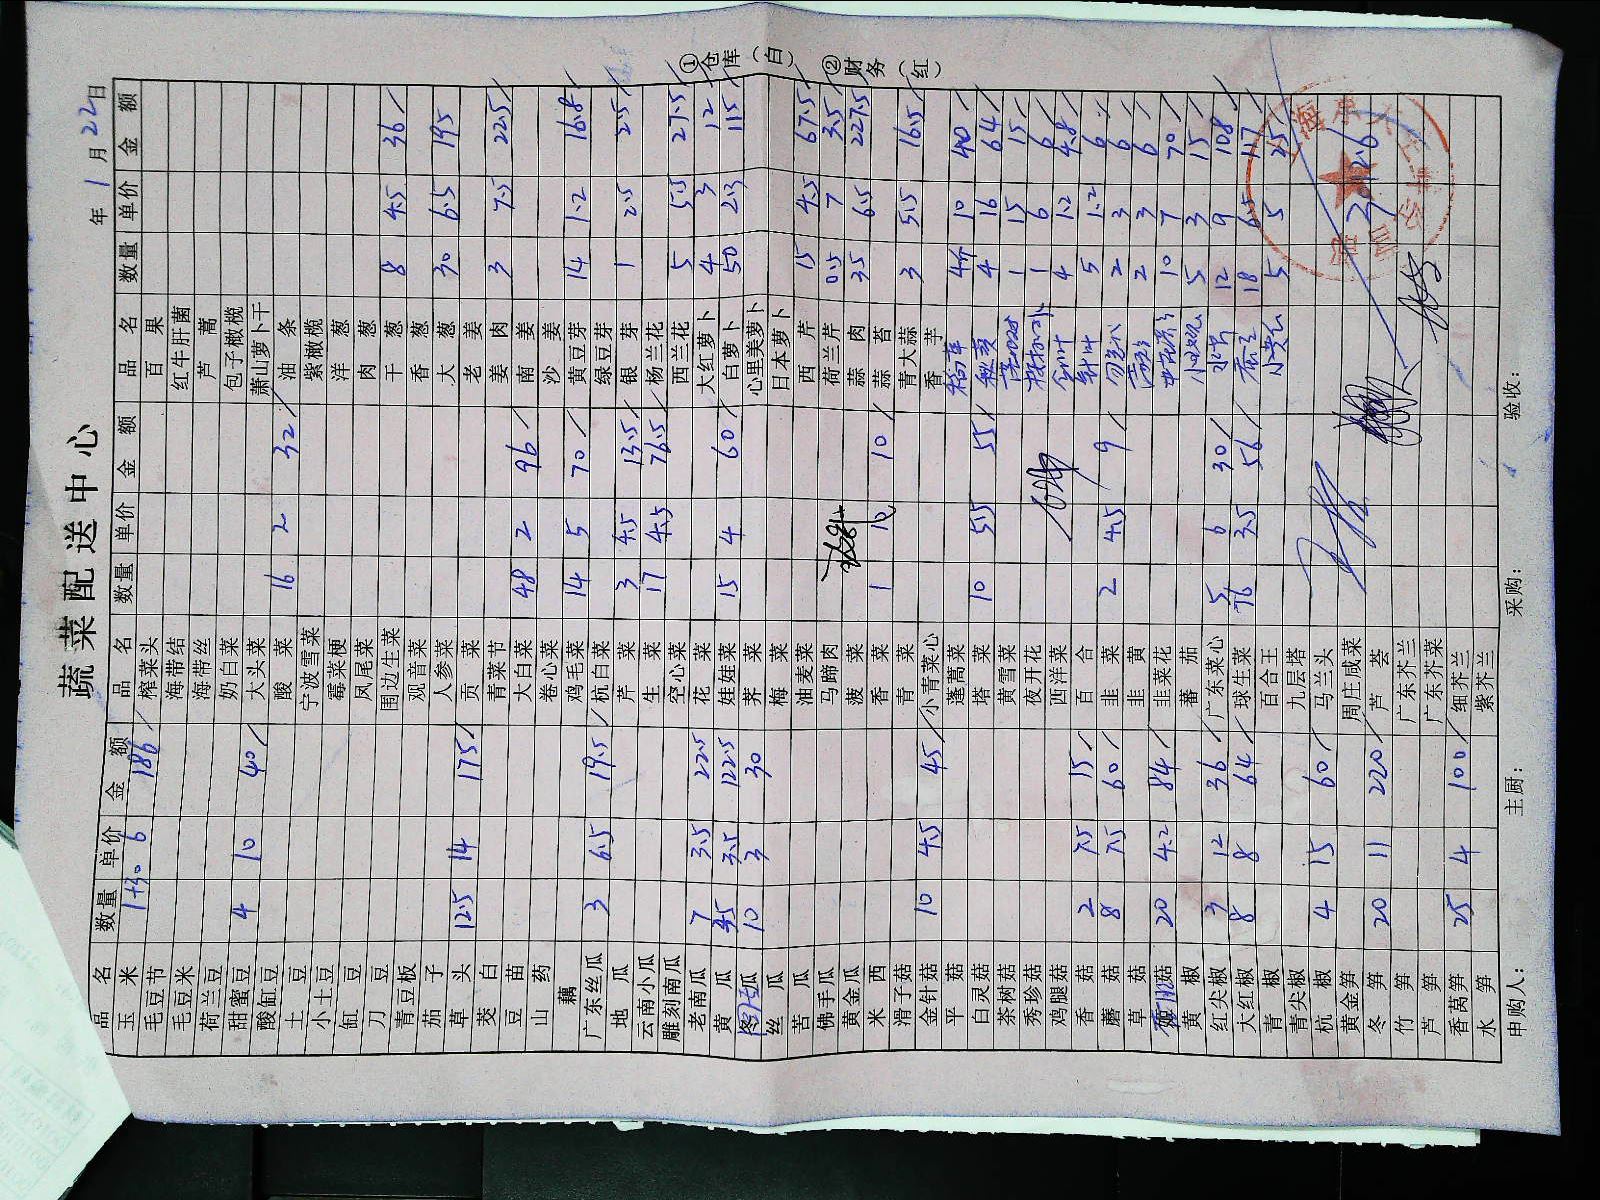 蔬菜配送中心
年 1 月 22 日
品名 数量 单价 金额 品名 数量 单价 金额 品名 数量 单价 金额
玉米 1+30 6 186 榨菜头 百果
毛豆节 海带结 红牛肝菌
毛豆米 海带丝 芦蒿
荷兰豆 奶白菜 包子橄榄
甜蜜豆 4 10 40 大头菜 萧山萝卜干
酸缸豆 酸菜 16 2 32 油条
土豆 宁波雪菜 紫橄榄
小土豆 霉菜梗 洋葱
缸豆 凤尾菜 肉葱
刀豆 围边生菜 干葱 8 4.5 36
青豆板 观音菜 香葱
茄子 人参菜 大葱 30 6.5 195
草头 12.5 14 175 贡菜 老姜
茭白 青菜节 姜肉 3 7.5 22.5
豆苗 大白菜 48 2 96 南姜
山药 卷心菜 沙姜
藕 鸡毛菜 14 5 70 黄豆芽 14 1.2 16.8
广东丝瓜 3 6.5 19.5 杭白菜 绿豆芽
地瓜 芹菜 3 4.5 13.5 银芽 1 2.5 2.5
云南小瓜 生菜 17 4.5 76.5 杨兰花
雕刻南瓜 空心菜 西兰花 5 5.5 27.5
老南瓜 7 3.5 22.5 花菜 大红萝卜 4 3 12
黄瓜 35 3.5 122.5 娃娃菜 15 4 60 白萝卜 50 2.3 115
瓜 10 3 30 荠菜 心里美萝卜
丝瓜 梅菜 日本萝卜
苦瓜 油麦菜 西芹 15 4.5 67.5
佛手瓜 马蹄肉 荷兰芹 0.5 7 3.5
黄金瓜 菠菜 蒜肉 35 6.5 227.5
米西 香菜 1 10 10 蒜苔
滑子菇 青菜 青大蒜 3 5.5 16.5
金针菇 10 4.5 45 小青菜心 香芋
平菇 蓬蒿菜 4 10 40
白灵菇 塔菜 10 5.5 55 4 16 64
茶树菇 黄雪菜 1 15 15
秀珍菇 夜开花 1 6 6
鸡腿菇 西洋菜 4 1.2 4.8
香菇 2 7.5 15 百合 5 1.2 6
蘑菇 8 7.5 60 韭菜 2 4.5 9 2 3 6
草菇 韭黄 2 3 6
菇 20 4.2 84 韭菜花 10 7 70
黄椒 蕃茄 5 3 15
红尖椒 3 12 36 广东菜心 5 6 30 12 9 108
大红椒 8 8 64 球生菜 16 3.5 56 18 6.5 117
青椒 百合王 5 5 25
青尖椒 九层塔
杭椒 4 15 60 马兰头
黄金笋 周庄咸菜
冬笋 20 11 220 芦荟
竹笋 广东芥兰
芦笋 广东芥菜
香莴笋 25 4 100 细芥兰
水笋 紫芥兰
申购人： 主厨： 采购： 验收：
①仓库（白） ②财务（红）